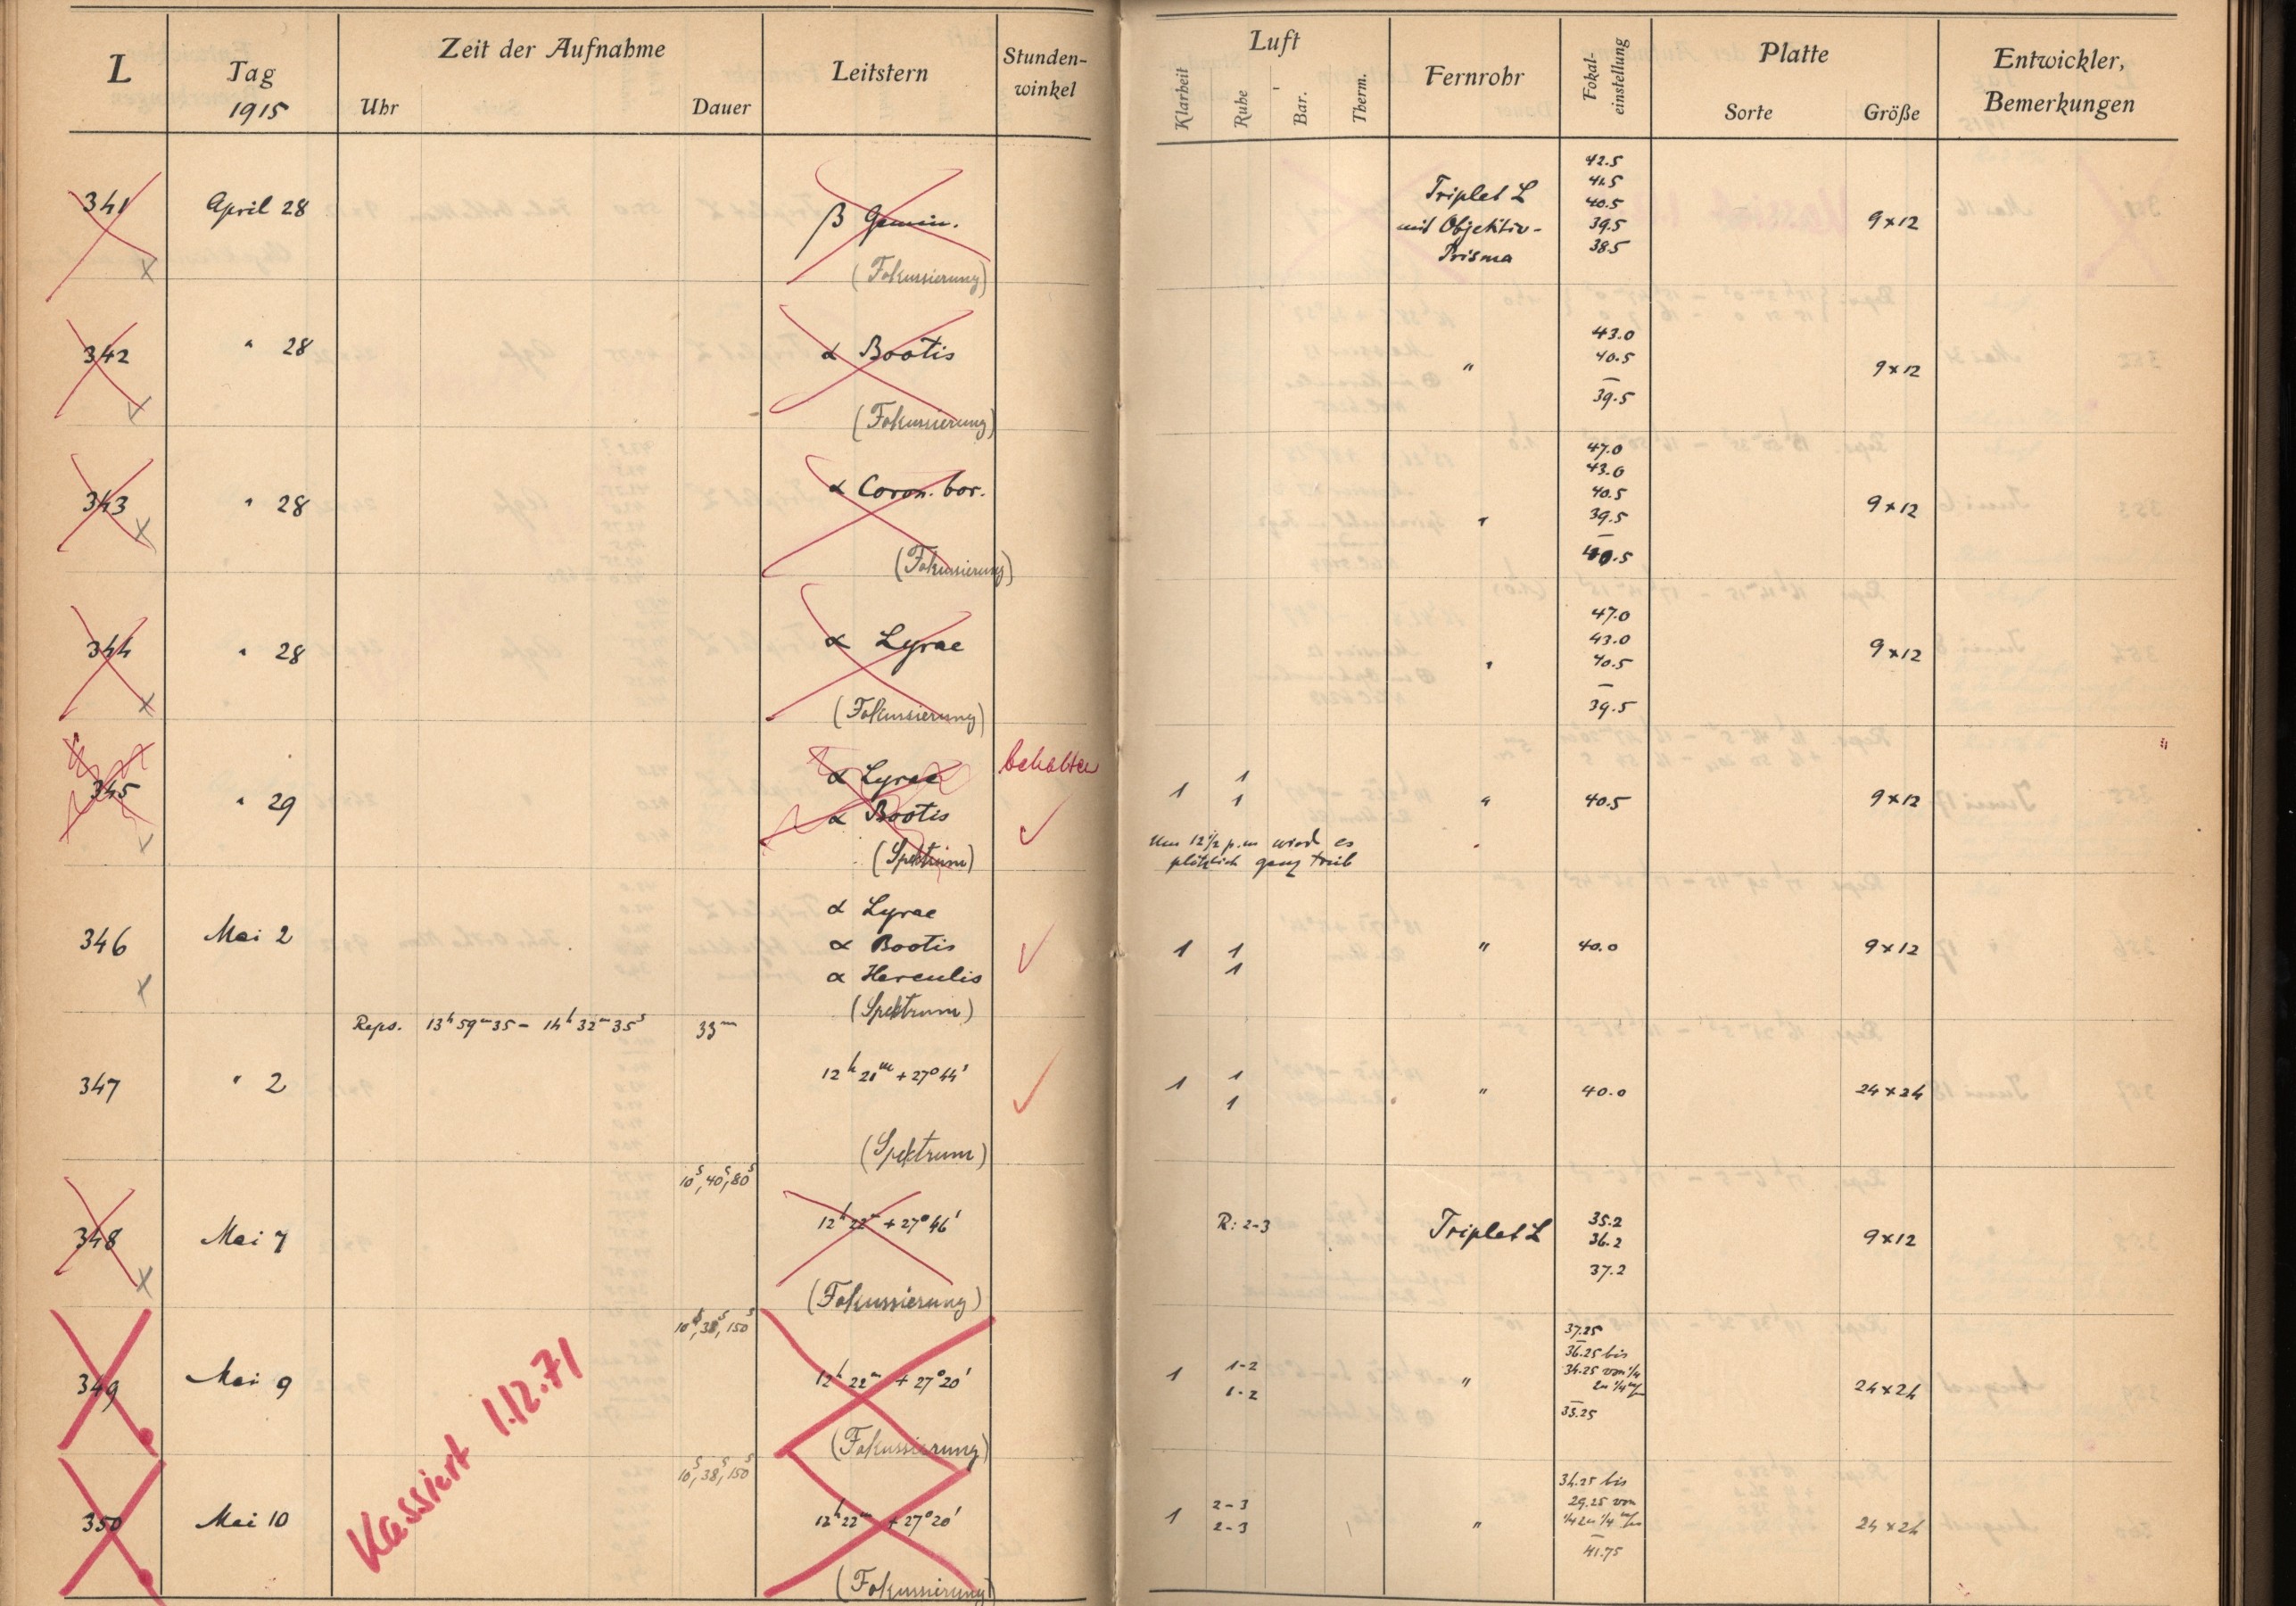 L
Tag
1915
Zeit der Aufnahme
Uhr
Dauer
Leitstern
Stunden-
winkel
Luft
Klarheit
Ruhe
Bar.
Therm.
Fernrohr
Fokal-
einstellung
Platte
Sorte
Größe
Entwickler,
Bemerkungen
341
April 28
β Gemin.
(Fokussierung)
Triplet L
mit Objektiv-
Prisma
42.5
41.5
40.5
39.5
38.5
9×12
342
" 28
α Bootis
(Fokussierung)
"
43.0
40.5
—
39.5
9×12
343
" 28
α Coron. bor.
(Fokussierung)
"
47.0
43.0
40.5
39.5
—
40.5
9×12
344
" 28
α Lyrae
(Fokussierung)
"
47.0
43.0
40.5
—
39.5
9×12
345
" 29
α Lyrae
α Bootis
(Spektrum)
behalten
✓
1
1
1
Um 12½ p.m wird es
plötzlich ganz trüb
"
40.5
9×12
346
Mai 2
α Lyrae
α Bootis
α Herculis
(Spektrum)
✓
1
1
1
"
40.0
9×12
347
" 2
Reps. 13ʰ59ᵐ35 – 14ʰ32ᵐ35ˢ
33ᵐ
12ʰ 21ᵐ + 27°44'
(Spektrum)
✓
1
1
1
"
40.0
24×24
348
Mai 7
10ˢ, 40ˢ, 80ˢ
12ʰ 22ᵐ + 27°46'
(Fokussierung)
R: 2-3
Triplet L
35.2
36.2
37.2
9×12
349
Mai 9
10ˢ, 38ˢ, 150ˢ
12ʰ 22ᵐ + 27°20'
(Fokussierung)
1
1-2
1-2
"
37.25
—
36.25 bis
34.25 von ¼
zu ¼ m/m
—
35.25
24×24
350
Mai 10
Kassiert 1.12.71
10ˢ, 38ˢ, 150ˢ
12ʰ 22ᵐ + 27°20'
(Fokussierung)
1
2-3
2-3
"
34.25 bis
29.25 von
¼ zu ¼ m/m
—
41.75
24×24